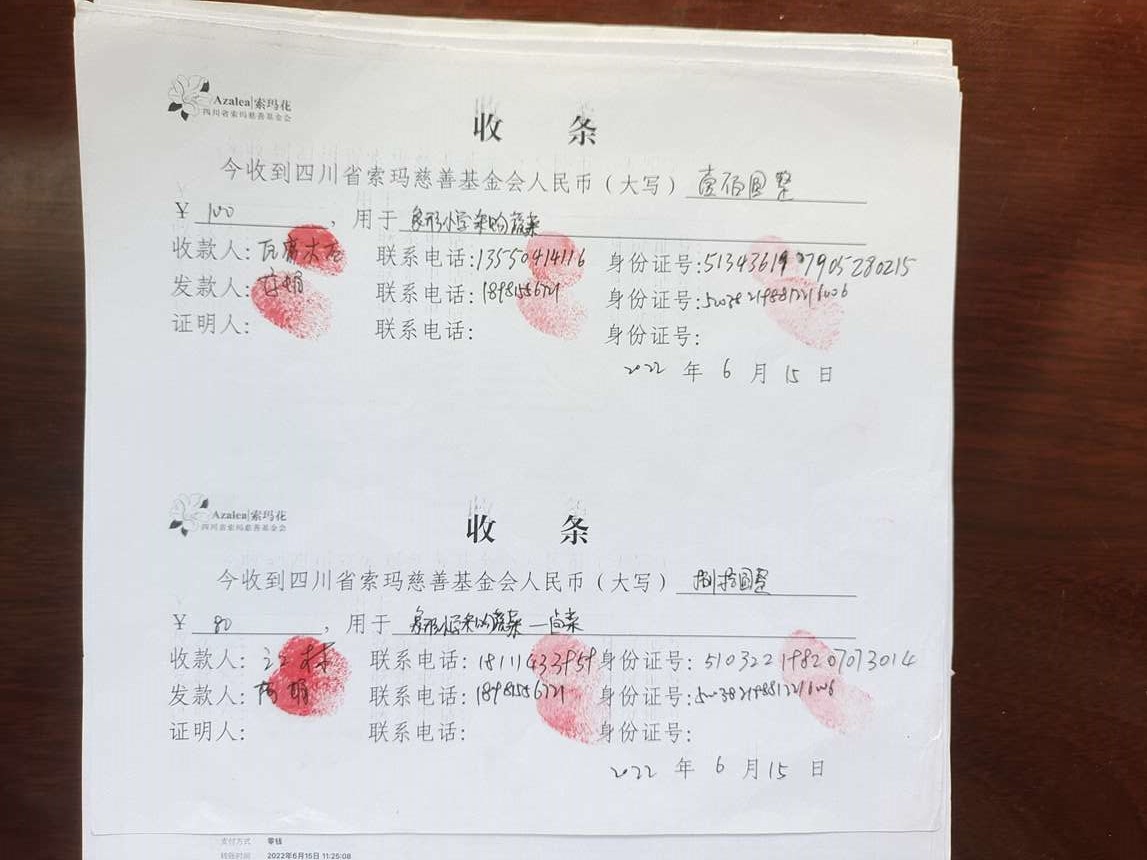 Azalea|索玛花
四川省索玛慈善基金会
收 条
今收到四川省索玛慈善基金会人民币（大写）壹佰圆整
¥ 100 ，用于 小学采购蔬菜
收款人: 联系电话:13550414116 身份证号:
发款人: 联系电话:18981556721 身份证号:
证明人: 联系电话: 身份证号:
2022 年 6 月 15 日
Azalea|索玛花
四川省索玛慈善基金会
收 条
今收到四川省索玛慈善基金会人民币（大写）捌拾圆整
¥ 80 ，用于 小学采购蔬菜
收款人: 联系电话: 身份证号: 510322198207073014
发款人: 联系电话:18981556721 身份证号:
证明人: 联系电话: 身份证号:
2022 年 6 月 15 日
支付方式 零钱
转账时间 2022年6月15日 11:25:08